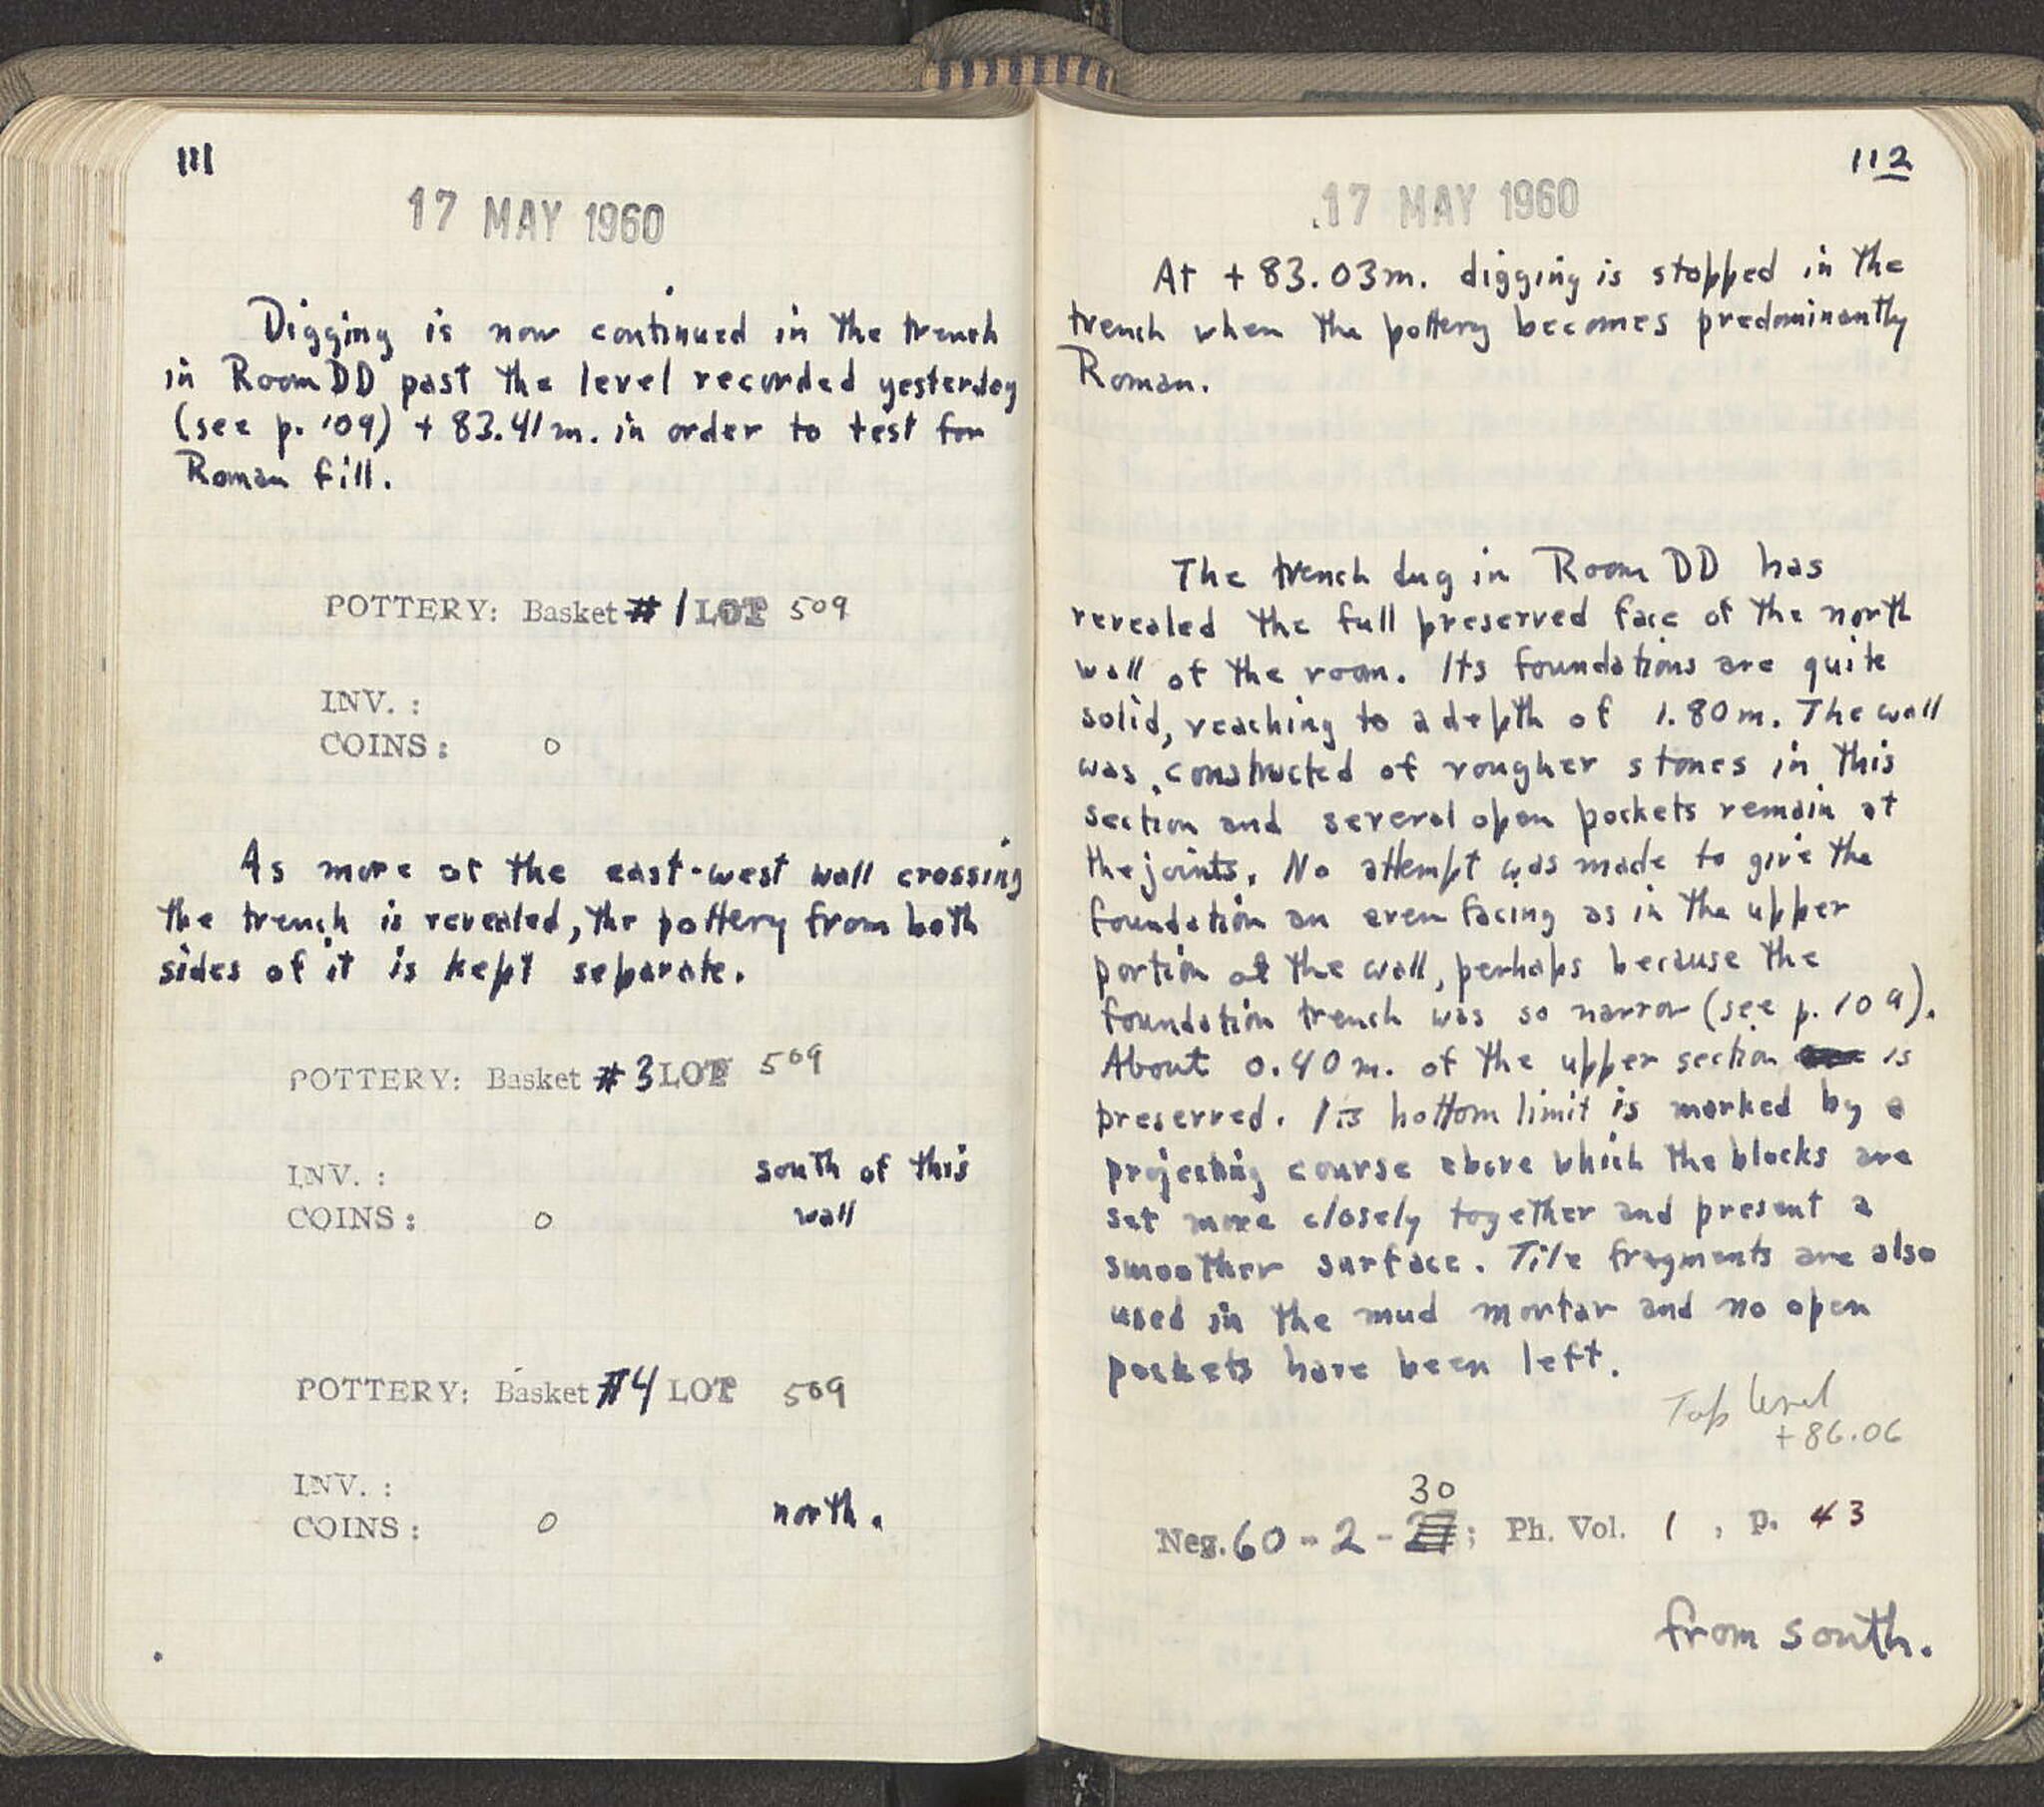 111
17 MAY 1960
Digging is now continued in the trench
in Room DD past the level recorded yesterday
(see p. 109) + 83.41m. in order to test for
Roman fill.
POTTERY: Basket #1 LOT 509
INV. :
COINS: 0
As more of the east-west wall crossing
the trench is revealed, the pottery from both
sides of it is kept separate.
POTTERY: Basket #3 LOT 509
INV. :
south of this
COINS: 0
wall
POTTERY: Basket #4 LOT 509
INV. :
COINS: 0
north.
112
17 MAY 1960
At + 83.03m. digging is stopped in the
trench when the pottery becomes predominantly
Roman.
The trench dug in Room DD has
revealed the full preserved face of the north
wall of the room. Its foundations are quite
solid, reaching to a depth of 1.80m. The wall
was constructed of rougher stones in this
section and several open pockets remain at
the joints. No attempt was made to give the
foundation an even facing as in the upper
portion of the wall, perhaps because the
foundation trench was so narrow (see p. 109).
About 0.40m. of the upper section is
preserved. Its bottom limit is marked by a
projecting course above which the blocks are
set more closely together and present a
smoother surface. Tile fragments are also
used in the mud mortar and no open
pockets have been left.
Top level
+86.06
30
Neg. 60-2-; Ph. Vol. 1, p. 43
from south.